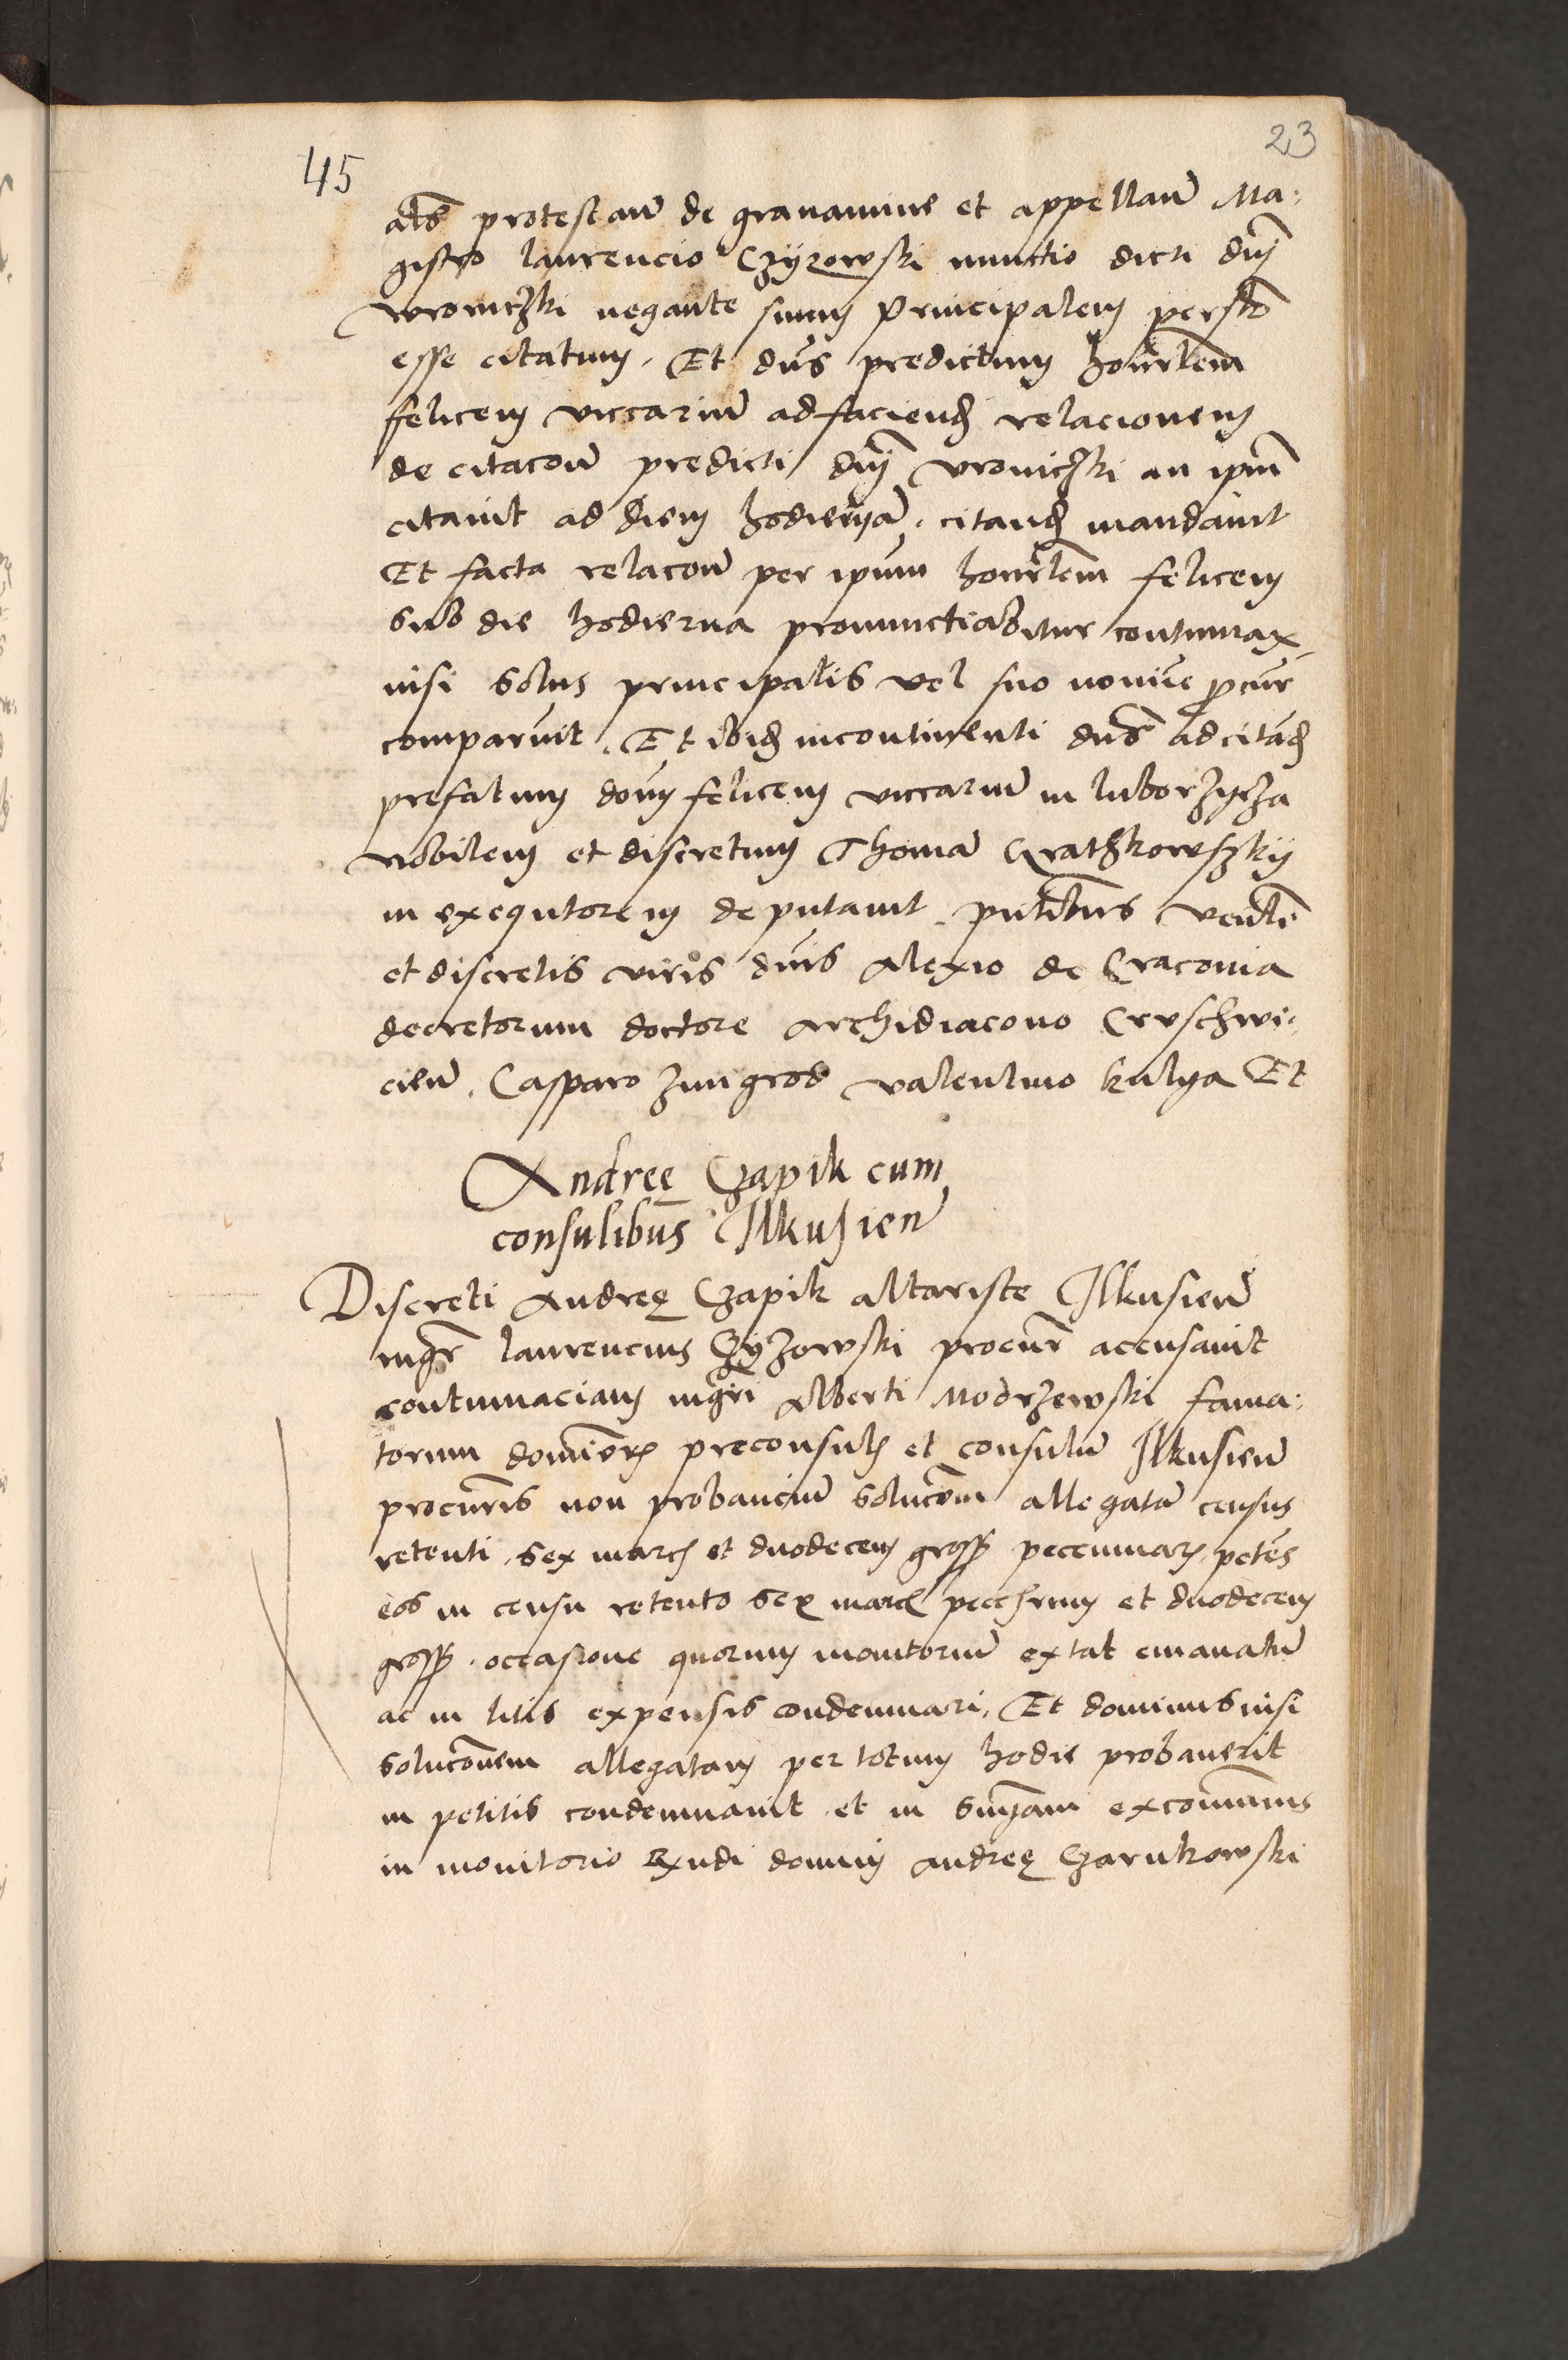 23
45
als protestaũ de grauamine et appellaũ Ma:
gistro laurencio Czijzowski nunctio dicti dñj
wroniczki negante suum Principalem persło
esse citatum. Et dñs predictum honrłem
felicem viccariũ ad faciend relacionem
de citacoũ predicti dñj vroniczki an ipm̃
citauit ad diem hodiernã. citand mandauit
Et facta relacoũ per ipũm honrłem felicem
sub die hodierna pronunctiabitur contumax
nisi solus principalis vel suo nomĩe ꝓcur̃
comparuit. Et ibid incontinenti dñs ad citãd
prefatum doñm felicem viccariũ in luborzycza
nobilem et discretum Thomã Grathkowszkij
in exequtorem deputauit. pñtibus veñli
et discretis viris dñis Alexio de Cracouia
decretorum doctore archidiacono Cruschwi:
cieñ. Casparo Jungrod valentino kulga Et
Andreę Czapik cum
consulibus Ilkusieñ
Discreti Andreę Czapik altariste Ilkusieñ
mgr̃ laurencius Czyzowski procur̃ accusauit
contumaciam mgr̃i Alberti Modrzewski fama:
torum dominorꝫ preconsulꝫ et consulũ Ilkusieñ
procur̃is non probanciũ solucõem allegatã census
retenti. sex marcꝫ et duodecem gross pecenniarꝫ petẽs
eos in censu retento sex marcꝫ et duodecem
gross. occasione quorum monitoriũ extat emanatũ
ac in litis expensis condemnari. Et dominus nisi
solucõnem allegatam per totum hodie probauerit
in petitis condemnauit. et in sniam excom̃nis
in monitorio Rñdi domini Andreę Czarnkowski